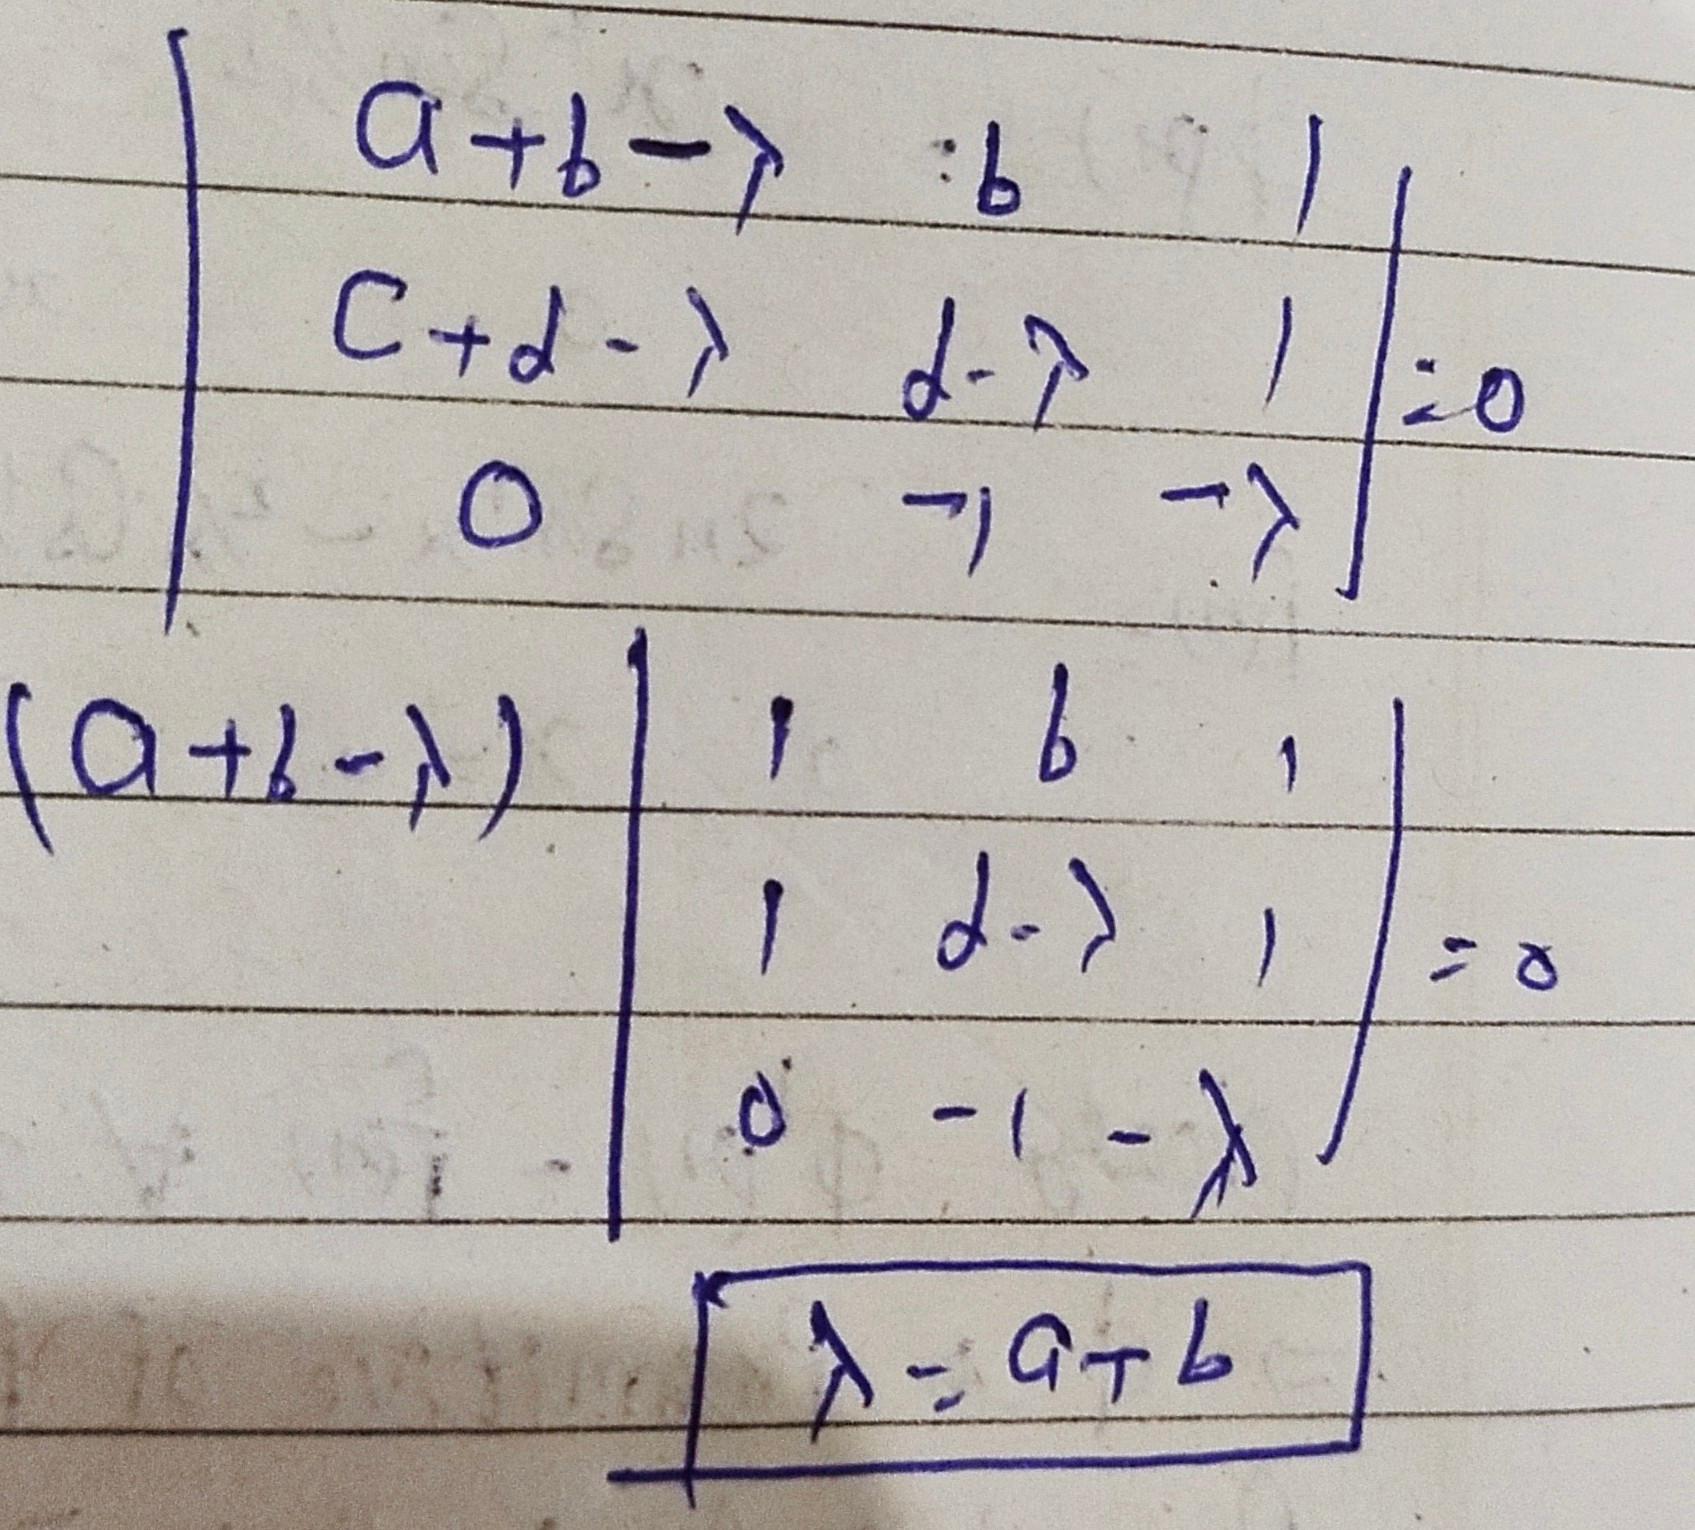 | a+b-λ b 1 |
| c+d-λ d-λ 1 | = 0
| 0 -1 -λ |
(a+b-λ) | 1 b 1 |
| 1 d-λ 1 | = 0
| 0 -1 -λ |
λ = a+b